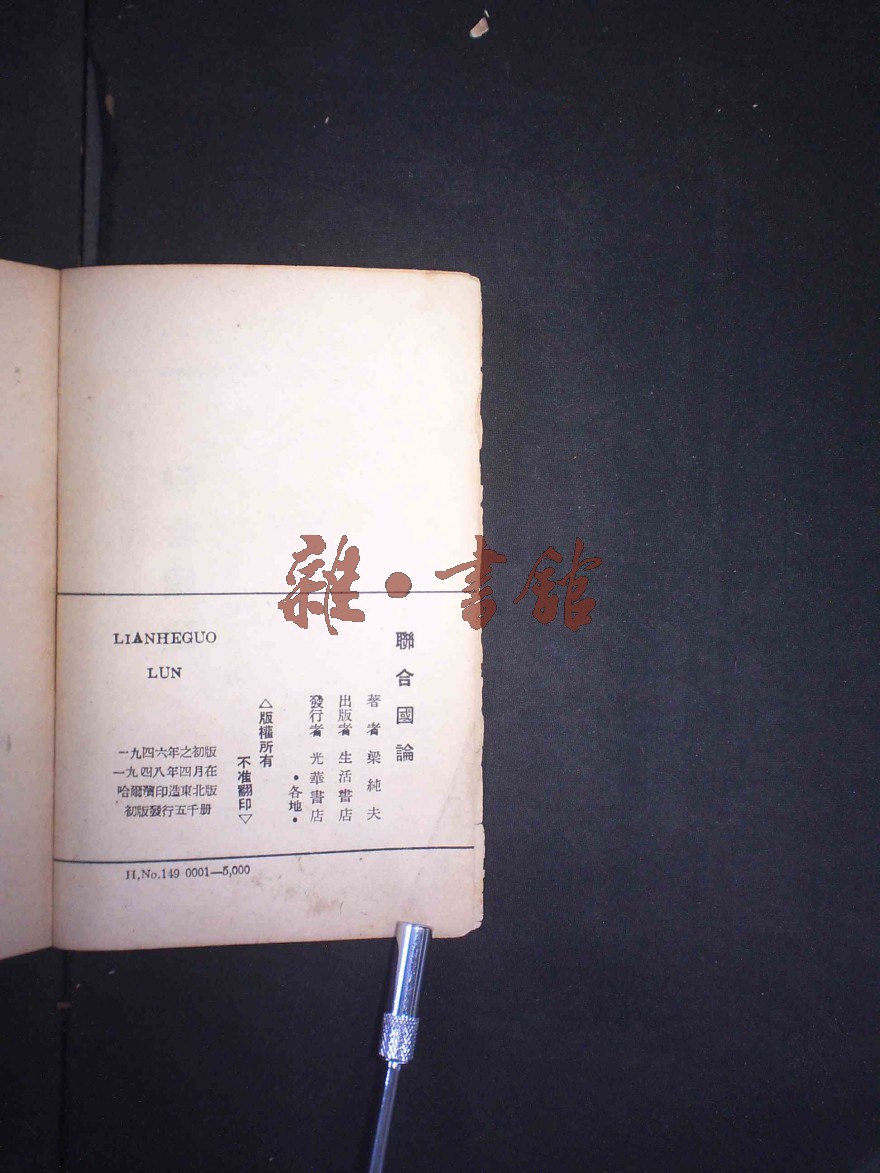 雜·書館
聯合國論
著者 梁純夫
出版者 生活書店
發行者 光華書店
·各地·
△版權所有
不准翻印▽
LIANHEGUO
LUN
一九四六年之初版
一九四八年四月在
哈爾濱印造東北版
初版發行五千册
H.No.149 0001—5,000